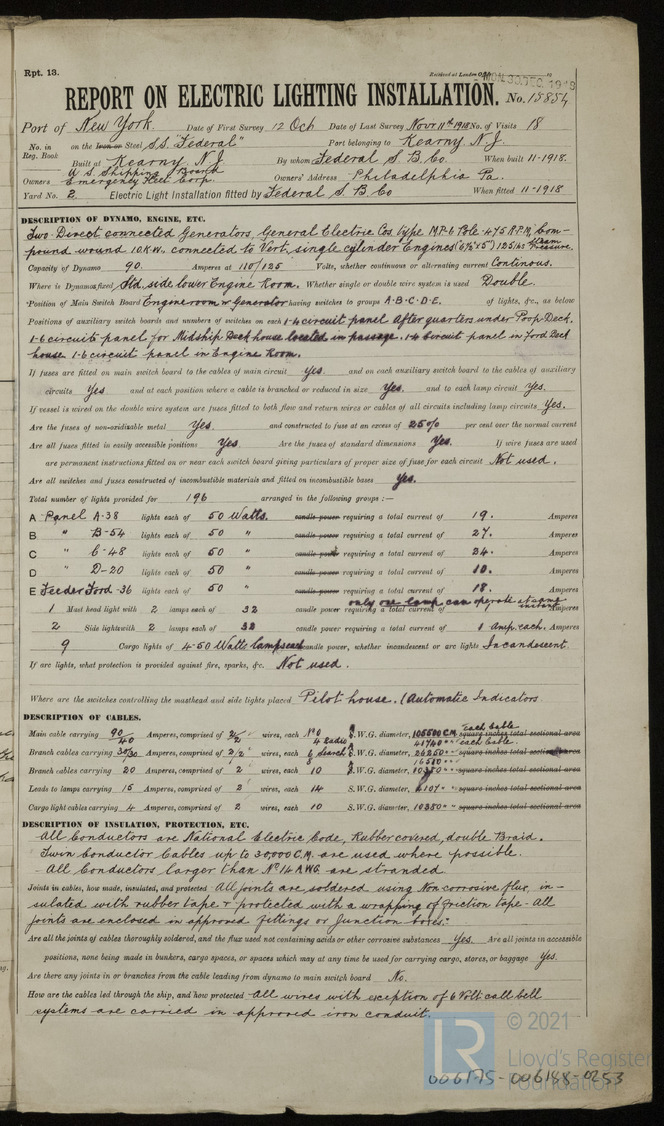 Rpt. 13.
Received at London Office
MON. 30 DEC. 1918
REPORT ON ELECTRIC LIGHTING INSTALLATION. No. 15854
Port of New York. Date of First Survey 12 Oct Date of Last Survey Novr 11th 1918 No. of Visits 18
No. in Reg. Book on the Iron or Steel S.S. "Federal" Port belonging to Kearny N.J.
Built at Kearny. N.J. By whom Federal S B. Co. When built 11-1918.
Owners U S. Shipping Board Emergency Fleet Corp. Owners' Address Philadelphia Pa.
Yard No. 2. Electric Light Installation fitted by Federal S B Co When fitted 11-1918
DESCRIPTION OF DYNAMO, ENGINE, ETC.
Two Direct connected Generators, General Electric Cos. type M.P-6 Pole-475 R.P.M, Com-
pound wound 10 K.W. connected to Vert, single cylinder Engines (6½"x5") 125 lbs Steam Pressure.
Capacity of Dynamo 90. Amperes at 110/125 Volts, whether continuous or alternating current Continous.
Where is Dynamo fixed Std, side lower Engine Room. Whether single or double wire system is used Double.
Position of Main Switch Board Engine room nr Generator having switches to groups A-B-C-D-E. of lights, &c., as below
Positions of auxiliary switch boards and numbers of switches on each 1-4 circuit panel After quarters under Poop Deck.
1-6 circuits panel for Midship Deck house located in passage. 1-4 circuit panel in Ford Deck
house. 1-6 circuit panel in Engine Room.
If fuses are fitted on main switch board to the cables of main circuit yes. and on each auxiliary switch board to the cables of auxiliary
circuits Yes and at each position where a cable is branched or reduced in size Yes. and to each lamp circuit Yes.
If vessel is wired on the double wire system are fuses fitted to both flow and return wires or cables of all circuits including lamp circuits Yes.
Are the fuses of non-oxidizable metal Yes. and constructed to fuse at an excess of 25% per cent over the normal current
Are all fuses fitted in easily accessible positions Yes Are the fuses of standard dimensions Yes. If wire fuses are used
are permanent instructions fitted on or near each switch board giving particulars of proper size of fuse for each circuit Not used.
Are all switches and fuses constructed of incombustible materials and fitted on incombustible bases Yes.
Total number of lights provided for 196 arranged in the following groups :—
A Panel A-38 lights each of 50 Watts. candle power requiring a total current of 19. Amperes
B " B-54 lights each of 50 " candle power requiring a total current of 27. Amperes
C " C-48 lights each of 50 " candle power requiring a total current of 24. Amperes
D " D-20 lights each of 50 " candle power requiring a total current of 10. Amperes
E Feeder Ford-36 lights each of 50 " candle power requiring a total current of 18. Amperes
1 Mast head light with 2 lamps each of 32 candle power requiring a total current of only one lamp can operate at same instant Amperes
2 Side lights with 2 lamps each of 32 candle power requiring a total current of 1 amp. each. Amperes
9 Cargo lights of 4-50 Watts lamps each candle power, whether incandescent or arc lights Incandescent.
If arc lights, what protection is provided against fire, sparks, &c. Not used.
Where are the switches controlling the masthead and side lights placed Pilot house. (Automatic Indicators
DESCRIPTION OF CABLES.
Main cable carrying 90/40 Amperes, comprised of 2/2 wires, each No 0 4 Radio S.W.G. diameter, 105500 C.M. each Cable square inches total sectional area
41740 " " each Cable.
Branch cables carrying 30/30 Amperes, comprised of 2/2 wires, each 6 Search 8 S.W.G. diameter, 26250 " " square inches total sectional area
16510 " "
Branch cables carrying 20 Amperes, comprised of 2 wires, each 10 S.W.G. diameter, 10380 " " square inches total sectional area
Leads to lamps carrying 15 Amperes, comprised of 2 wires, each 14 S.W.G. diameter, 4107 " " square inches total sectional area
Cargo light cables carrying 4 Amperes, comprised of 2 wires, each 10 S.W.G. diameter, 10380 " " square inches total sectional area
DESCRIPTION OF INSULATION, PROTECTION, ETC.
All Conductors are National Electric Code, Rubber covered, double Braid.
Twin Conductor Cables up to 30,000 C.M. are used where possible.
All Conductors larger than No 14 A.W.G. are stranded.
Joints in cables, how made, insulated, and protected All joints are soldered using Non corrosive flux, in-
sulated with rubber tape & protected with a wrapping of friction tape - All
joints are enclosed in approved fittings or Junction boxes.
Are all the joints of cables thoroughly soldered, and the flux used not containing acids or other corrosive substances Yes. Are all joints in accessible
positions, none being made in bunkers, cargo spaces, or spaces which may at any time be used for carrying cargo, stores, or baggage Yes.
Are there any joints in or branches from the cable leading from dynamo to main switch board No.
How are the cables led through the ship, and how protected All wires with exception of 6 Volt call bell
systems are carried in approved iron conduit.
© 2021
LR
Lloyd's Register
Foundation
006175-006188-0253